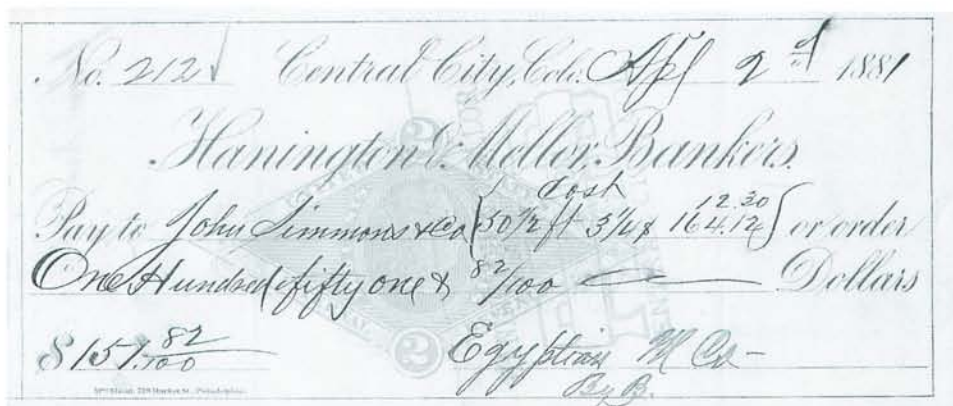 No. 212 Central City, Colo. Apl 2d 1881
Hanington & Mellor, Bankers.
Cost 12.30
Pay to John Simmons & Co (50 1/2 ft 3 1/4 $ 164.12) or order
One Hundred fifty one & 82/100 Dollars
$151.82/100 Egyptian M Co
By B.
2 2